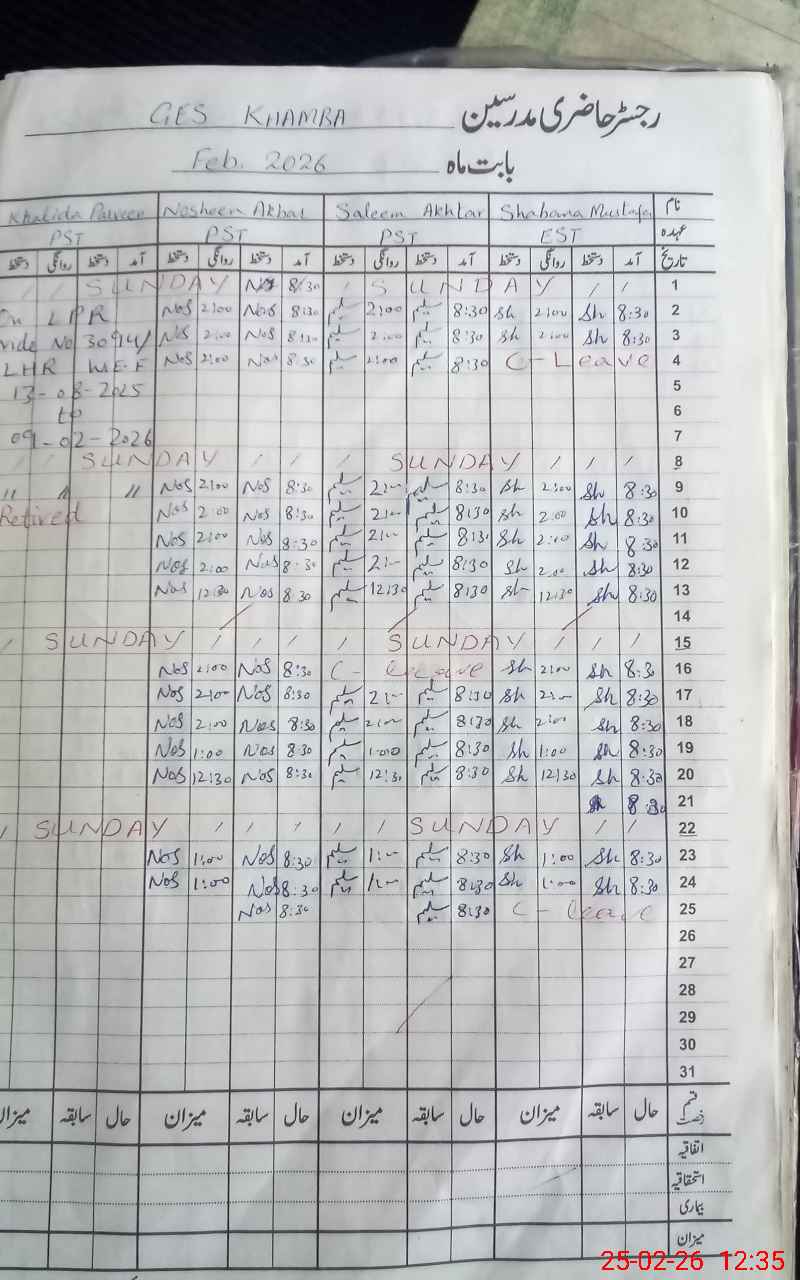 رجسٹر حاضری مدرسین GES KHAMBA
بابت ماہ Feb. 2026
نام Shabana Mustafa Saleem Akhtar Nosheen Akhtar Khalida Parveen
عہدہ EST PST PST PST
تاریخ آمد دستخط روانگی دستخط آمد دستخط روانگی دستخط آمد دستخط روانگی دستخط آمد دستخط روانگی دستخط
1 / / SUNDAY 8/30 Nos SUNDAY / /
2 8:30 Sh 2:00 Sh 8:30 سلیم 2:00 سلیم 8:30 Nos 2:00 Nos On LPR
3 8:30 Sh 2:00 Sh 8:30 سلیم 2:00 سلیم 8:30 Nos 2:00 Nos vide No 30914/
4 C-Leave 8:30 سلیم 2:00 سلیم 8:30 Nos 2:00 Nos LHR W.E.F
5 13-08-2025
6 to
7 09-02-2026
8 / / / SUNDAY / / / SUNDAY / /
9 8:30 Sh 2:00 Sh 8:30 سلیم 2:00 سلیم 8:30 Nos 2:00 Nos " " "
10 8:30 Sh 2:00 Sh 8:30 سلیم 2:00 سلیم 8:30 Nos 2:00 Nos Retired
11 8:30 Sh 2:00 Sh 8:30 سلیم 2:00 سلیم 8:30 Nos 2:00 Nos
12 8:30 Sh 2:00 Sh 8:30 سلیم 2:00 سلیم 8:30 Nos 2:00 Nos
13 8:30 Sh 12:30 Sh 8:30 سلیم 12:30 سلیم 8:30 Nos 12:30 Nos
14
15 / / / SUNDAY / / / / / SUNDAY /
16 8:30 Sh 2:00 Sh C-Leave 8:30 Nos 2:00 Nos
17 8:30 Sh 2:00 Sh 8:30 سلیم 2:00 سلیم 8:30 Nos 2:00 Nos
18 8:30 Sh 2:00 Sh 8:30 سلیم 2:00 سلیم 8:30 Nos 2:00 Nos
19 8:30 Sh 1:00 Sh 8:30 سلیم 1:00 سلیم 8:30 Nos 1:00 Nos
20 8:30 Sh 12:30 Sh 8:30 سلیم 12:30 سلیم 8:30 Nos 12:30 Nos
21 8:30 Sh
22 / / SUNDAY / / / / / / SUNDAY /
23 8:30 Sh 1:00 Sh 8:30 سلیم 1:00 سلیم 8:30 Nos 1:00 Nos
24 8:30 Sh 1:00 Sh 8:30 سلیم 1:00 سلیم 8:30 Nos 1:00 Nos
25 C-leave 8:30 سلیم 8:30 Nos
26
27
28
29
30
31
قسم رخصت حال سابقہ میزان حال سابقہ میزان حال سابقہ میزان حال سابقہ میزان
اتفاقیہ
استحقاقیہ
بیماری
میزان
25-02-26 12:35